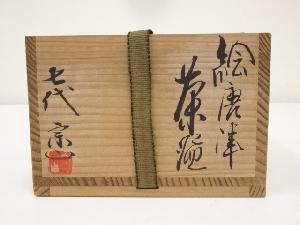 絵唐津
茶碗
七代 宗